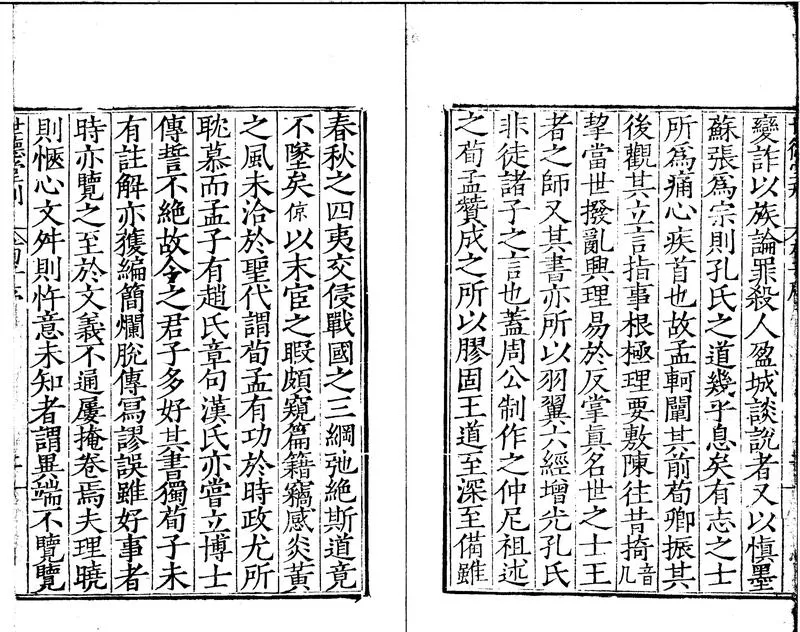 變詐以族論罪殺人盈城談說者又以慎墨
蘇張爲宗則孔氏之道幾乎息矣有志之士
所爲痛心疾首也故孟軻闡其前荀卿振其
後觀其立言指事根極理要敷陳往昔掎音几
挈當世撥亂興理易於反掌眞名世之士王
者之師又其書亦所以羽翼六經增光孔氏
非徒諸子之言也蓋周公制作之仲尼祖述
之荀孟贊成之所以膠固王道至深至備雖
春秋之四夷交侵戰國之三綱弛絶斯道竟
不墜矣倞以末宦之暇頗窺篇籍竊感炎黃
之風未洽於聖代謂荀孟有功於時政尤所
耽慕而孟子有趙氏章句漢氏亦嘗立博士
傳誓不絶故今之君子多好其書獨荀子未
有註解亦獲編簡爛脫傳寫謬誤雖好事者
時亦覽之至於文義不通屢掩卷焉夫理曉
則愜心文舛則忤意未知者謂異端不覽覽
世德堂刊